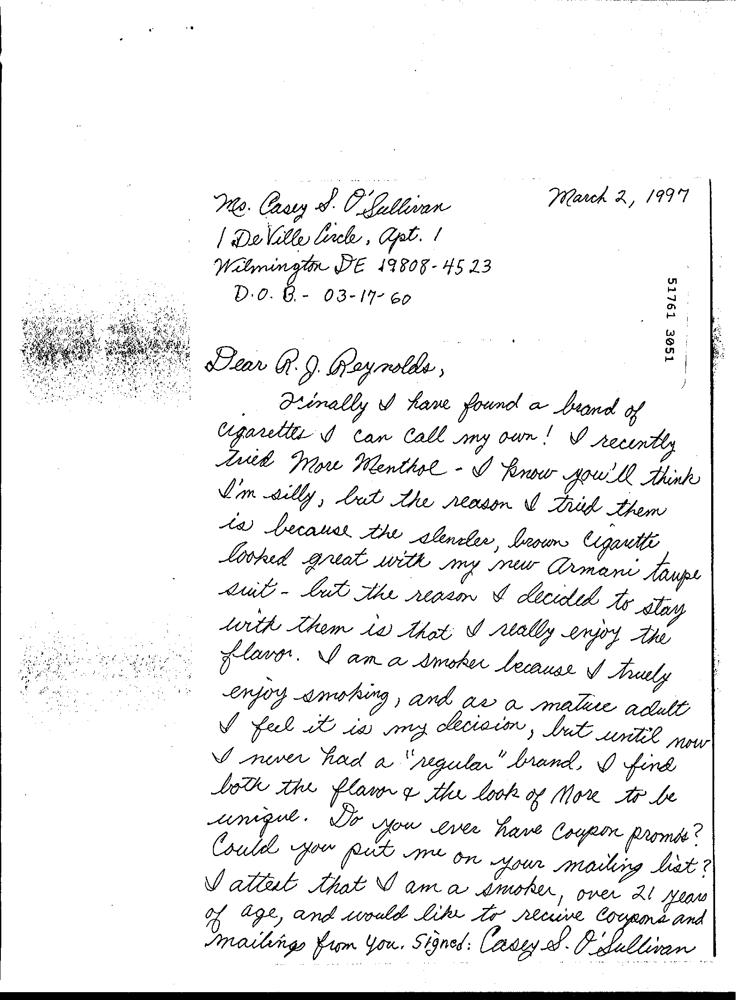 Ms. Casey S. O'Sullivan
March 2, 1997
1 DeVille Circle, Apt. 1
Wilmington DE 19808-4523
D.O.B.- 03-17-60
51761 3051
Dear R.J. Reynolds,
Finally I have found a brand of
cigarettes I can call my own! I recently
tried More Menthol - I know you'll think
I'm silly, but the reason I tried them
is because the slender, brown cigarette
looked great with my new Armani taupe
suit - but the reason I decided to stay
with them is that I really enjoy the
flavor. I am a smoker because I truely
enjoy smoking, and as a mature adult
I feel it is my decision, but until now
I never had a "regular" brand. I find
both the flavor & the look of More to be
unique. Do you ever have coupon promos?
Could you put me on your mailing list?
I attest that I am a smoker, over 21 years
of age, and would like to receive coupons and
mailings from you. Signed: Casey S. O'Sullivan